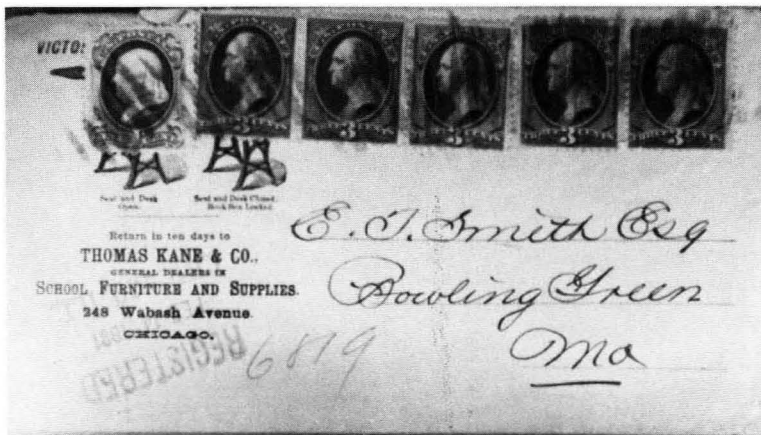 VICTO
3
3
3
3
3
Seat and Desk
Open.
Seat and Desk Closed.
Book Box Locked.
Return in ten days to
THOMAS KANE & CO.,
GENERAL DEALERS IN
SCHOOL FURNITURE AND SUPPLIES.
248 Wabash Avenue.
CHICAGO.
REGISTERED
6819
E. T. Smith Esq
Bowling Green
Mo